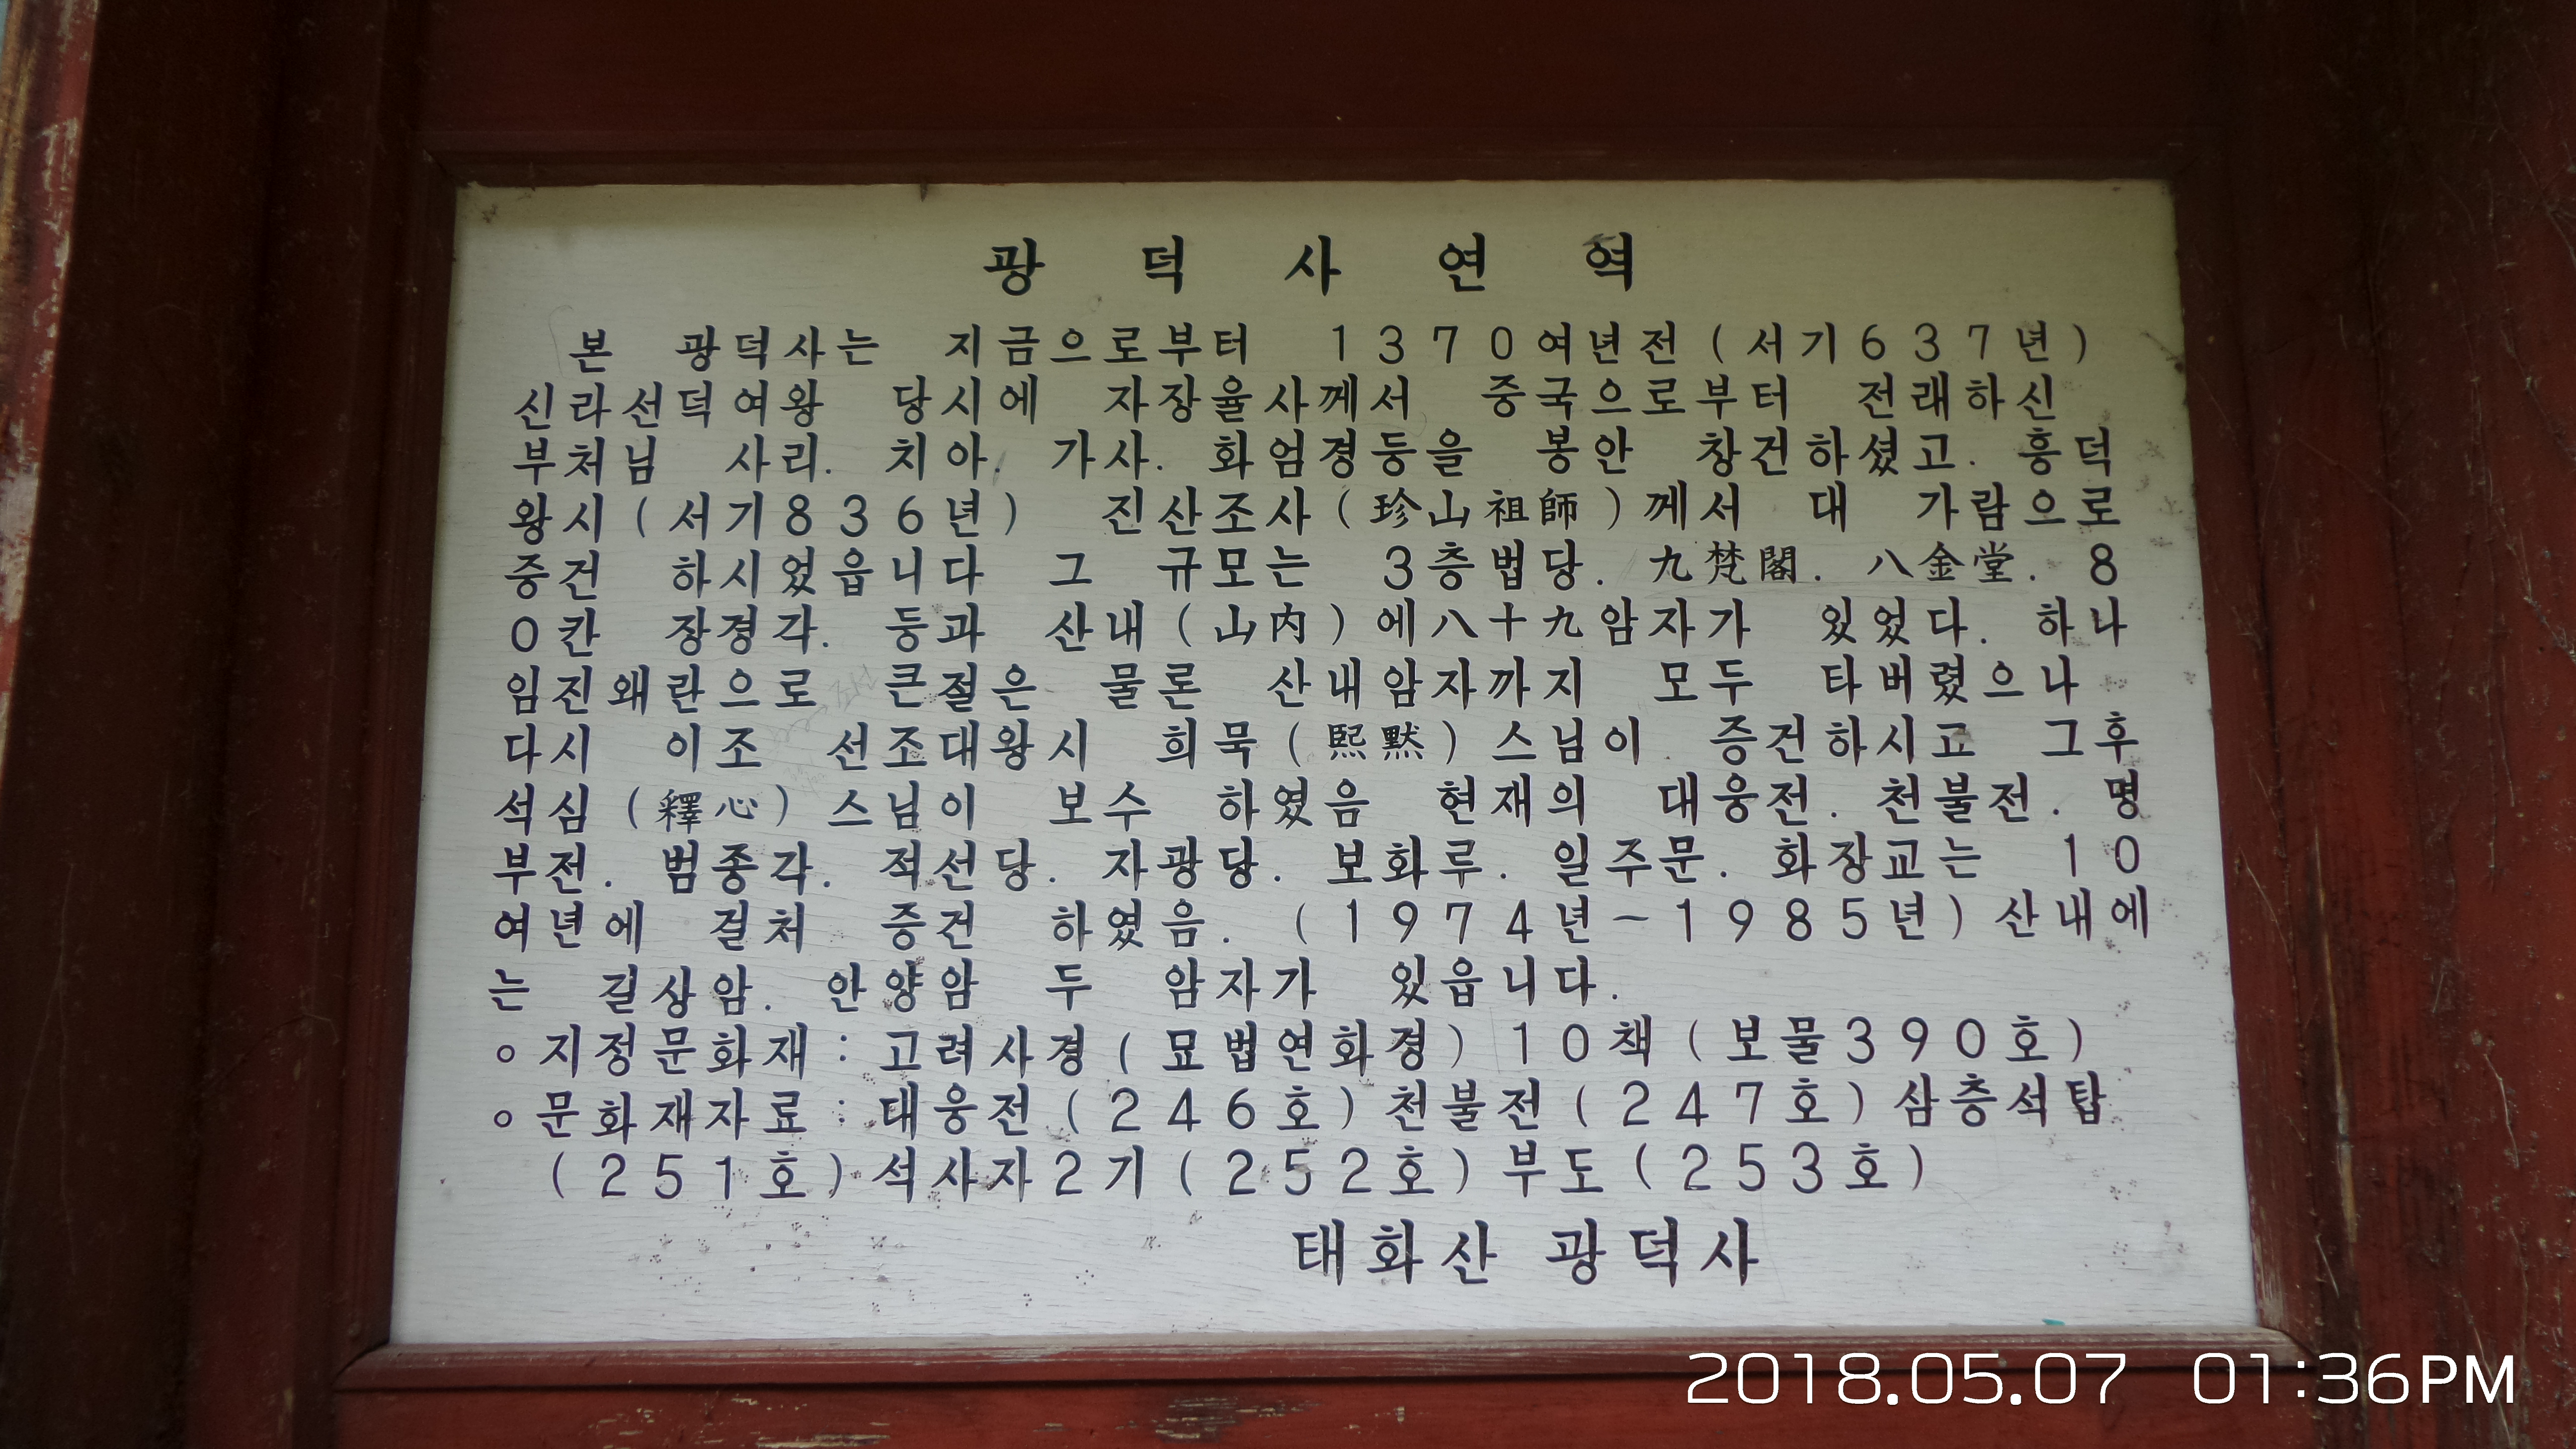 광덕사연역
본 광덕사는 지금으로부터 1370여년전(서기637년)
신라선덕여왕 당시에 자장율사께서 중국으로부터 전래하신
부처님 사리. 치아. 가사. 화엄경등을 봉안 창건하셨고. 흥덕
왕시(서기836년) 진산조사(珍山祖師)께서 대 가람으로
중건 하시었읍니다 그 규모는 3층법당. 九梵閣. 八金堂. 8
0칸 장경각. 등과 산내(山內)에八十九암자가 있었다. 하나
임진왜란으로 큰절은 물론 산내암자까지 모두 타버렸으나
다시 이조 선조대왕시 희묵(熙黙)스님이 증건하시고 그후
석심(釋心)스님이 보수 하였음 현재의 대웅전. 천불전. 명
부전. 범종각. 적선당. 자광당. 보화루. 일주문. 화장교는 10
여년에 걸처 증건 하였음. (1974년~1985년)산내에
는 길상암. 안양암 두 암자가 있읍니다.
○지정문화재:고려사경(묘법연화경)10책(보물390호)
○문화재자료:대웅전(246호)천불전(247호)삼층석탑
(251호)석사자2기(252호)부도(253호)
태화산 광덕사
2018.05.07 01:36PM